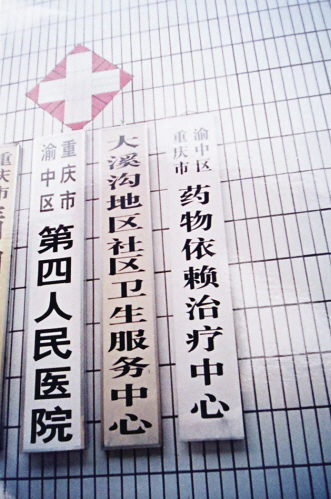 重庆市
重庆市
渝中区
第四人民医院
大溪沟地区社区卫生服务中心
重庆市
渝中区
药物依赖治疗中心